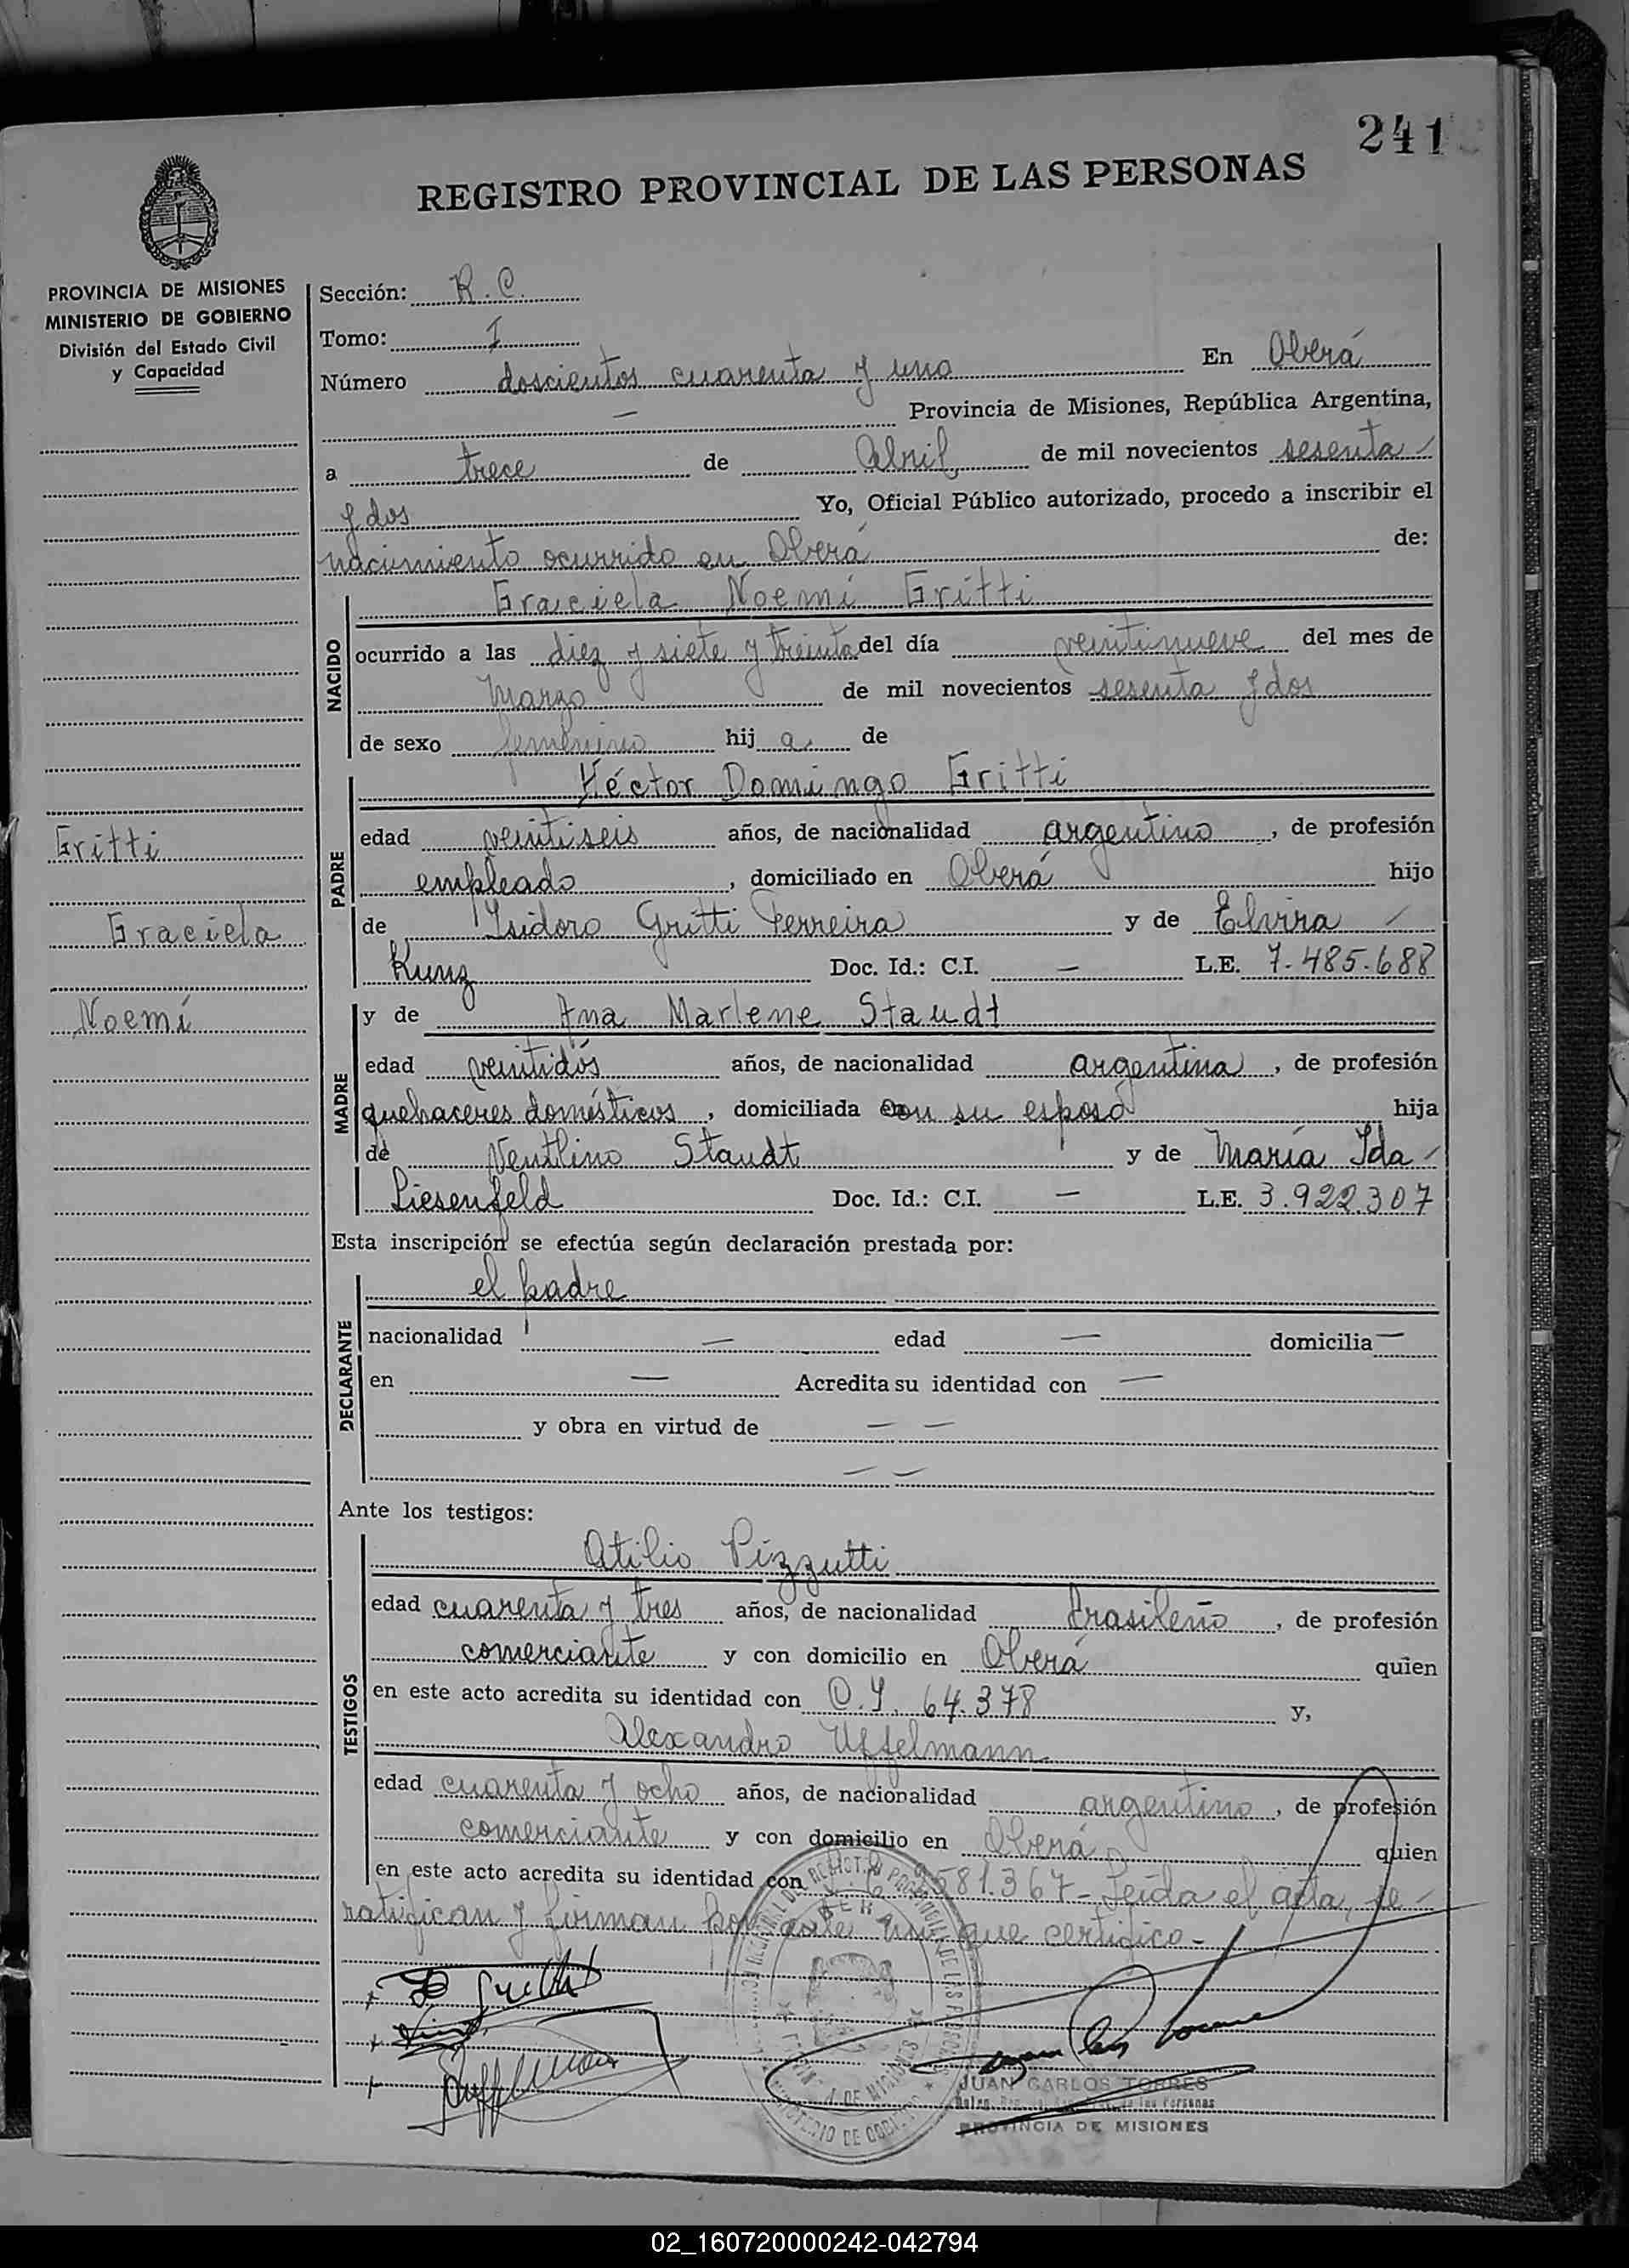 241
REGISTRO PROVINCIAL DE LAS PERSONAS
PROVINCIA DE MISIONES
MINISTERIO DE GOBIERNO
División del Estado Civil
y Capacidad
Gritti
Graciela
Noemí
Sección: R.C.
Tomo: I
Número doscientos cuarenta y uno En Oberá
— Provincia de Misiones, República Argentina,
a trece de Abril de mil novecientos sesenta
y dos Yo, Oficial Público autorizado, procedo a inscribir el
nacimiento ocurrido en Oberá de:
NACIDO
Graciela Noemí Gritti
ocurrido a las diez y siete y treinta del día veintinueve del mes de
Marzo de mil novecientos sesenta y dos
de sexo femenino hij a. de
PADRE
Héctor Domingo Gritti
edad veintiseis años, de nacionalidad argentino, de profesión
empleado, domiciliado en Oberá hijo
de Isidoro Gritti Ferreira y de Elvira
Kunz Doc. Id.: C.I. — L.E. 7.485.688
MADRE
y de Ana Marlene Staudt
edad veintidós años, de nacionalidad argentina, de profesión
quehaceres domésticos, domiciliada con su esposo hija
de Ventlino Staudt y de María Ida
Liesenfeld Doc. Id.: C.I. — L.E. 3.922.307
Esta inscripción se efectúa según declaración prestada por:
DECLARANTE
el padre
nacionalidad — edad — domicilia —
en — Acredita su identidad con —
y obra en virtud de — —
— —
Ante los testigos:
TESTIGOS
Atilio Pizzutti
edad cuarenta y tres años, de nacionalidad brasileño, de profesión
comerciante y con domicilio en Oberá quien
en este acto acredita su identidad con C.I. 64.378 y,
Alexandro Uffelmann
edad cuarenta y ocho años, de nacionalidad argentino, de profesión
comerciante y con domicilio en Oberá quien
en este acto acredita su identidad con 581.367- Leída el acta, se
ratifican y firman por ante mí que certifico-
JUAN CARLOS TORRES
PROVINCIA DE MISIONES
02_160720000242-042794